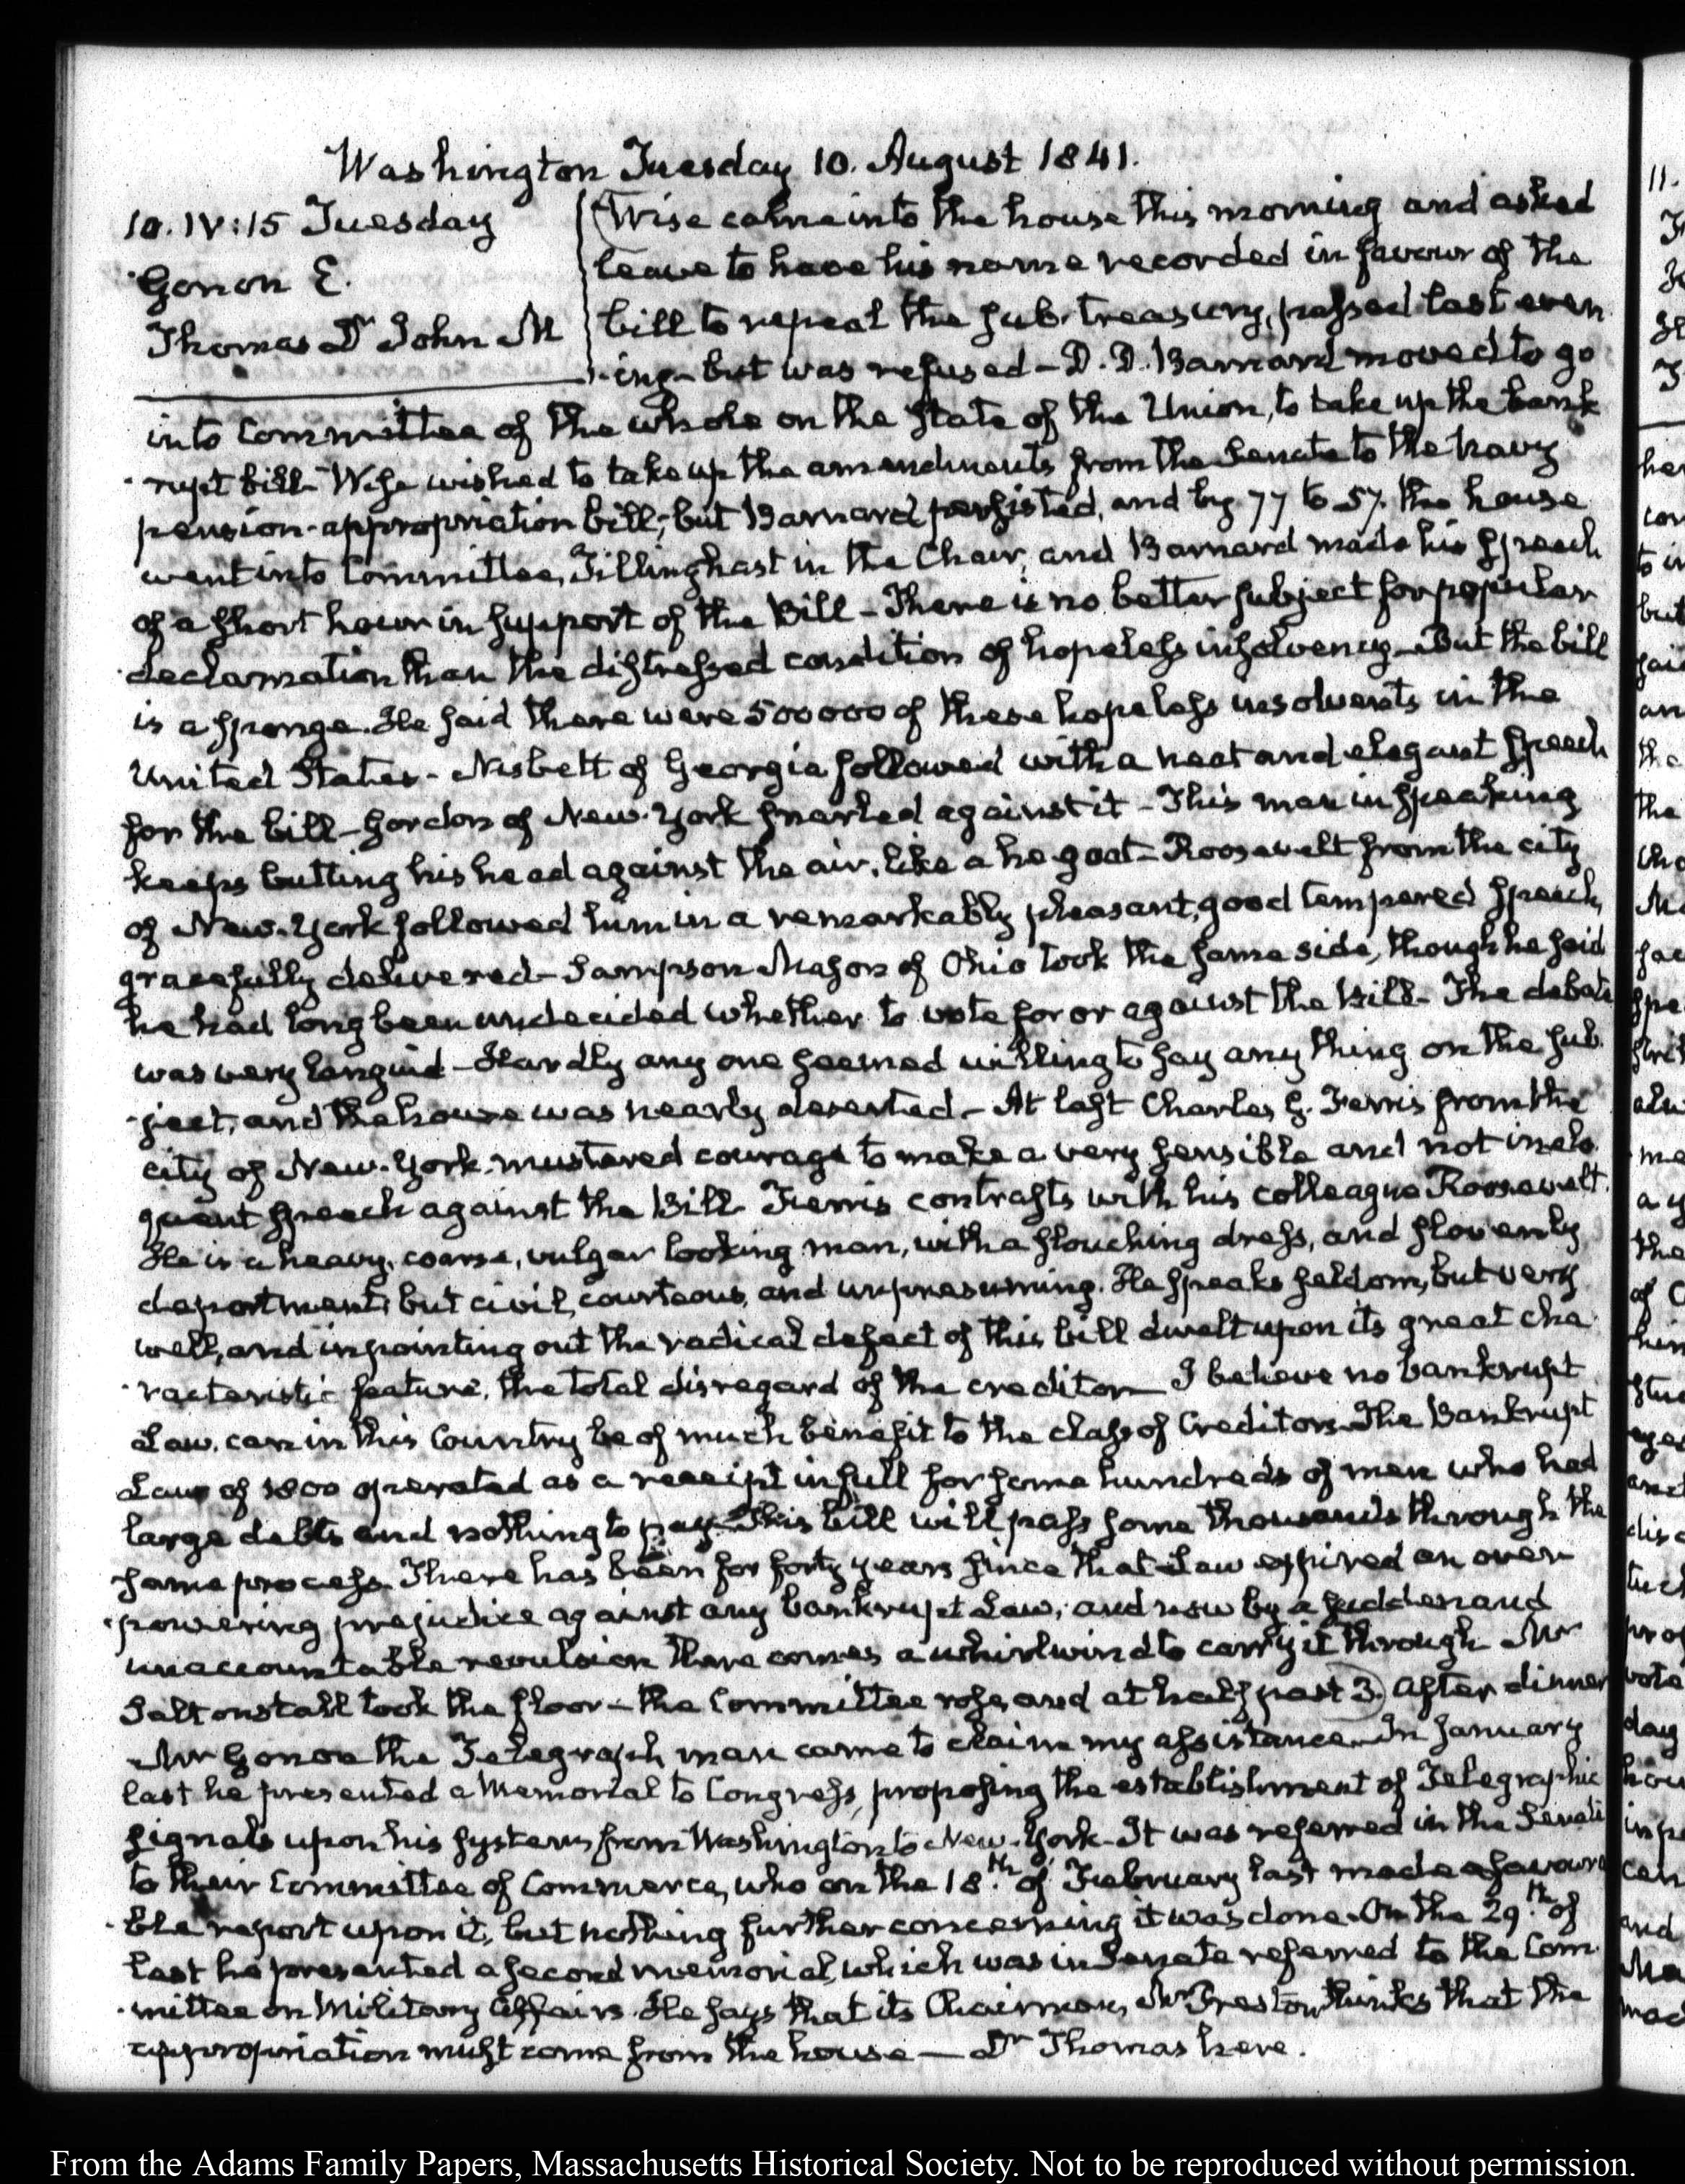 Washington Tuesday 10. August 1841.
10. IV:15 Tuesday
Gonon E.
Thomas Dr John M
Wise came into the house this morning and asked
leave to have his name recorded in favour of the
bill to repeal the sub-treasury, passed last even
-ing- but was refused - D. D. Barnard moved to go
into Committee of the whole on the State of the Union, to take up the bank
-rupt bill- Wise wished to take up the amendments from the Senate to the navy
pension-appropriation bill; but Barnard persisted, and by 77 to 57. the house
went into Committee, Tillinghast in the Chair, and Barnard made his speech
of a short hour in support of the Bill - There is no better subject for popular
declamation than the distressed condition of hopeless insolvency - But the bill
is a sponge. He said there were 500000 of these hopeless insolvents in the
United States - Nisbett of Georgia followed with a neat and elegant speech
for the bill - Gordon of New-York snarled against it - This man in speaking
keeps butting his head against the air, like a he-goat - Roosevelt from the city
of New-York followed him in a remarkably pleasant, good tempered speech,
gracefully delivered - Sampson Mason of Ohio took the same side, though he said
he had long been undecided whether to vote for or against the Bill - The debate
was very languid - Hardly any one seemed willing to say any thing on the sub
-ject, and the house was nearly deserted - At last Charles G. Ferris from the
city of New-York mustered courage to make a very sensible and not inelo
quent speech against the Bill. Ferris contrasts with his colleague Roosevelt.
He is a heavy, coarse, vulgar looking man, with a slouching dress, and slovenly
deportment; but civil, courteous, and unpresuming. He speaks seldom, but very
well, and in pointing out the radical defect of this bill dwelt upon its great cha
-racteristic feature, the total disregard of the creditor - I believe no bankrupt
Law. can in this Country be of much benefit to the class of Creditors. The Bankrupt
Law of 1800 operated as a receipt in full for some hundreds of men who had
large debts and nothing to pay. This bill will pass some thousands through the
same process. There has been for forty years since that Law expired an over
-powering prejudice against any bankrupt Law; and now by a sudden and
unaccountable revulsion there comes a whirlwind to carry it through Mr
Saltonstall took the floor - the Committee rose, and at half past 3. After dinner
Mr Gonon the Telegraph man came to claim my assistance. In January
last he presented a Memorial to Congress, proposing the establishment of Telegraphic
signals upon his system from Washington to New-York - It was referred in the Senate
to their Committee of Commerce, who on the 18th of February last made a favoura
-ble report upon it, but nothing further concerning it was done. On the 29th of
last he presented a second memorial, which was in Senate referred to the Com
-mittee on Military Affairs. He says that its Chairman, Mr Preston thinks that the
appropriation must come from the house — Dr Thomas here.
From the Adams Family Papers, Massachusetts Historical Society. Not to be reproduced without permission.